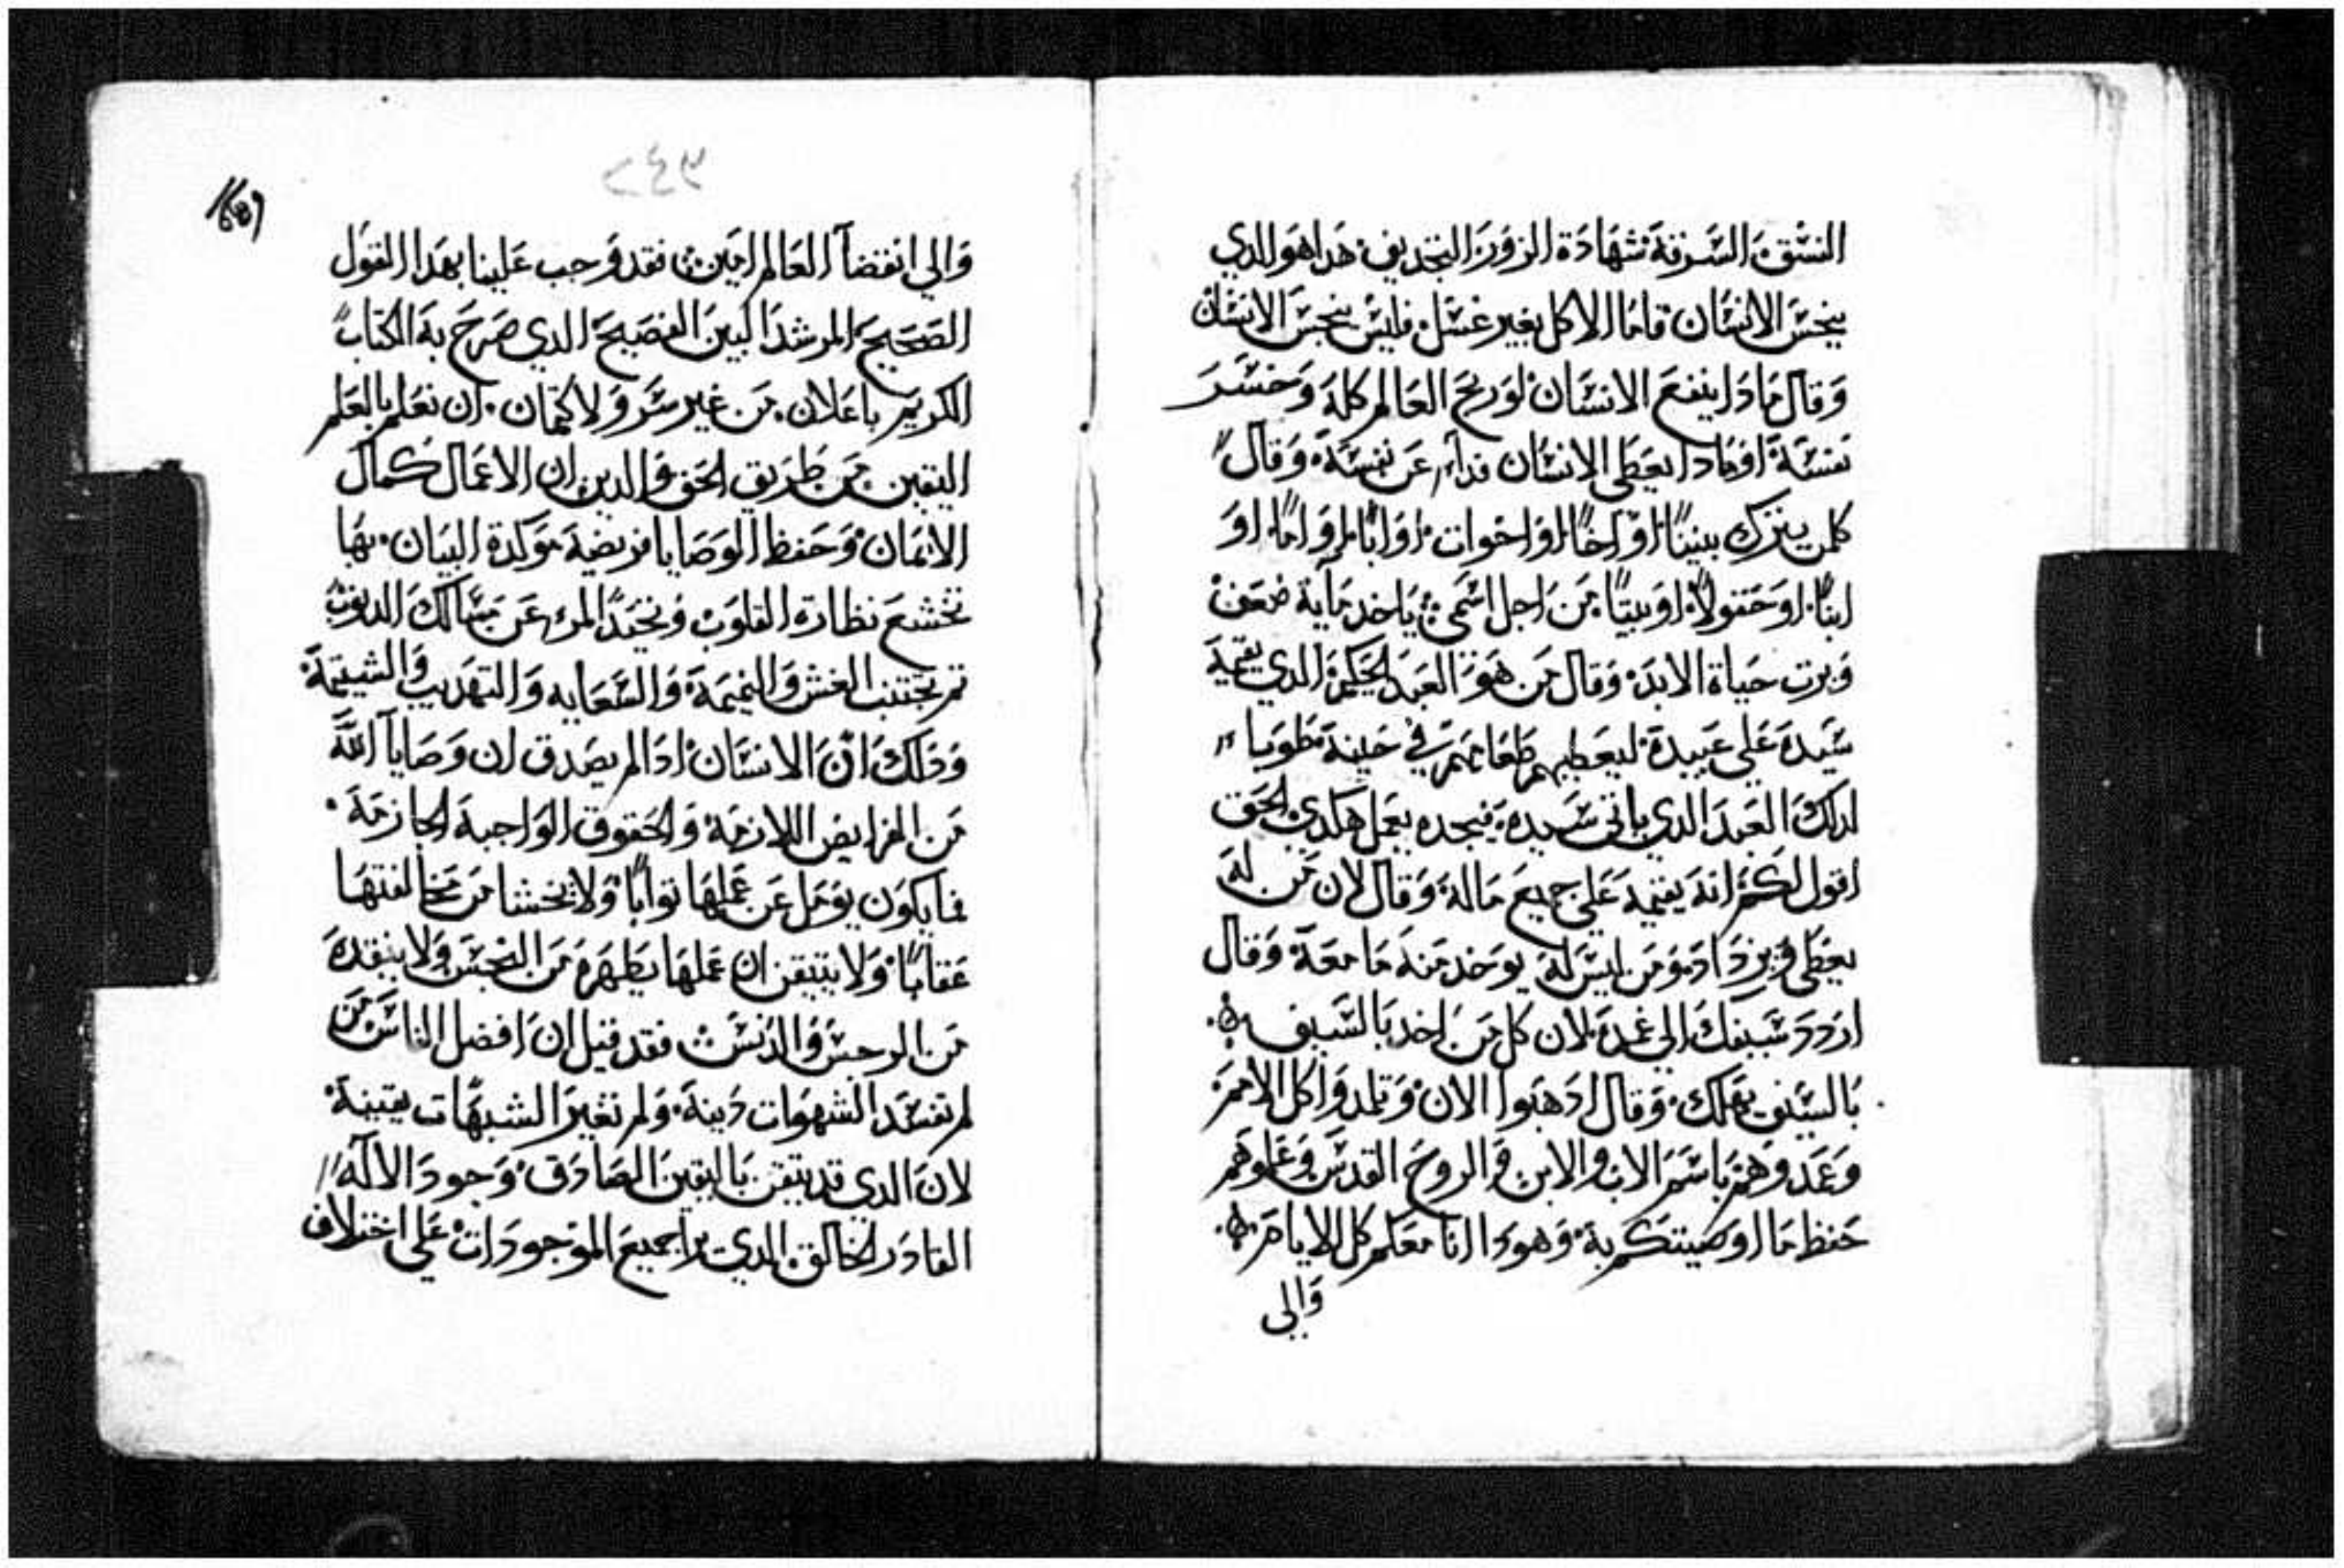 الفسق السرقة شهادة الزور التجديف هدا هو الدي
ينجس الانسان فاما الاكل بغير غسل فليس ينجس الانسان
وقال مادا ينفع الانسان لو ربح العالم كله وخسر
نفسه او مادا يعطي الانسان فداء عن نفسه وقال
كلمن يترك بنينًا او اخًا او اخوات او ابًا او امًا او
ابنًا او حقولاً او بيتًا من اجل اسمي ياخد ماية ضعف
ويرت حياة الابد وقال من هو العبد الحكيم الدي يقيمه
سيده علي عبيده ليعطيهم طعامهم في حينه طوبا
لدلك العبد الدي ياتي سيده فيجده يعمل هكدي الحق
اقول لكم انه يقيمه علي جميع ماله وقال لان من له
يعطي ويزداد ومن ليس له يوخد منه ما معه وقال
اردد سيفك الي غمده لان كل من اخد بالسيف
بالسيف يهلك وقال ادهبوا الان وتلمدوا كل الامم
وعمدوهم باسم الاب والابن والروح القدس وعلموهم
حفظ ما اوصيتكم به وهودا انا معكم كل الايام
والي
٢٤٣
والي انقضآ العالم امين فقد وجب علينا بهدا القول
الصحيح المرشد البين الفصيح الدي صرح به الكتاب
الكريم باعلان من غير سر ولا كتمان ان نعلم بالعلم
اليقين من طريق الحق والدين ان الاعمال كمال
الايمان وحفظ الوصايا فريضة موكدة البيان بها
تخشع نظارة القلوب وتحيد المرء عن مسالك الدنوب
تم تجتنب الغش والنميمة والسعايه والتهديب والشتيمة
ودلك ان الانسان ادا لم يصدق ان وصايا الله
من الفرايض اللازمة والحقوق الواجبة الجازمة
فما يكون يومل عن عملها توابًا ولا يخشا من مخالفتها
عقابًا ولا يتيقن ان عملها يطهره من النجس ولا ينقده
من الرجس والدنس فقد قيل ان افضل الناس من
لم تفسد الشهوات دينه ولم تغير الشبهات يقينه
لان الدي قد يتيقن باليقين الصادق وجود الاله
القادر الخالق الدي برا جميع الموجودات علي اختلاف